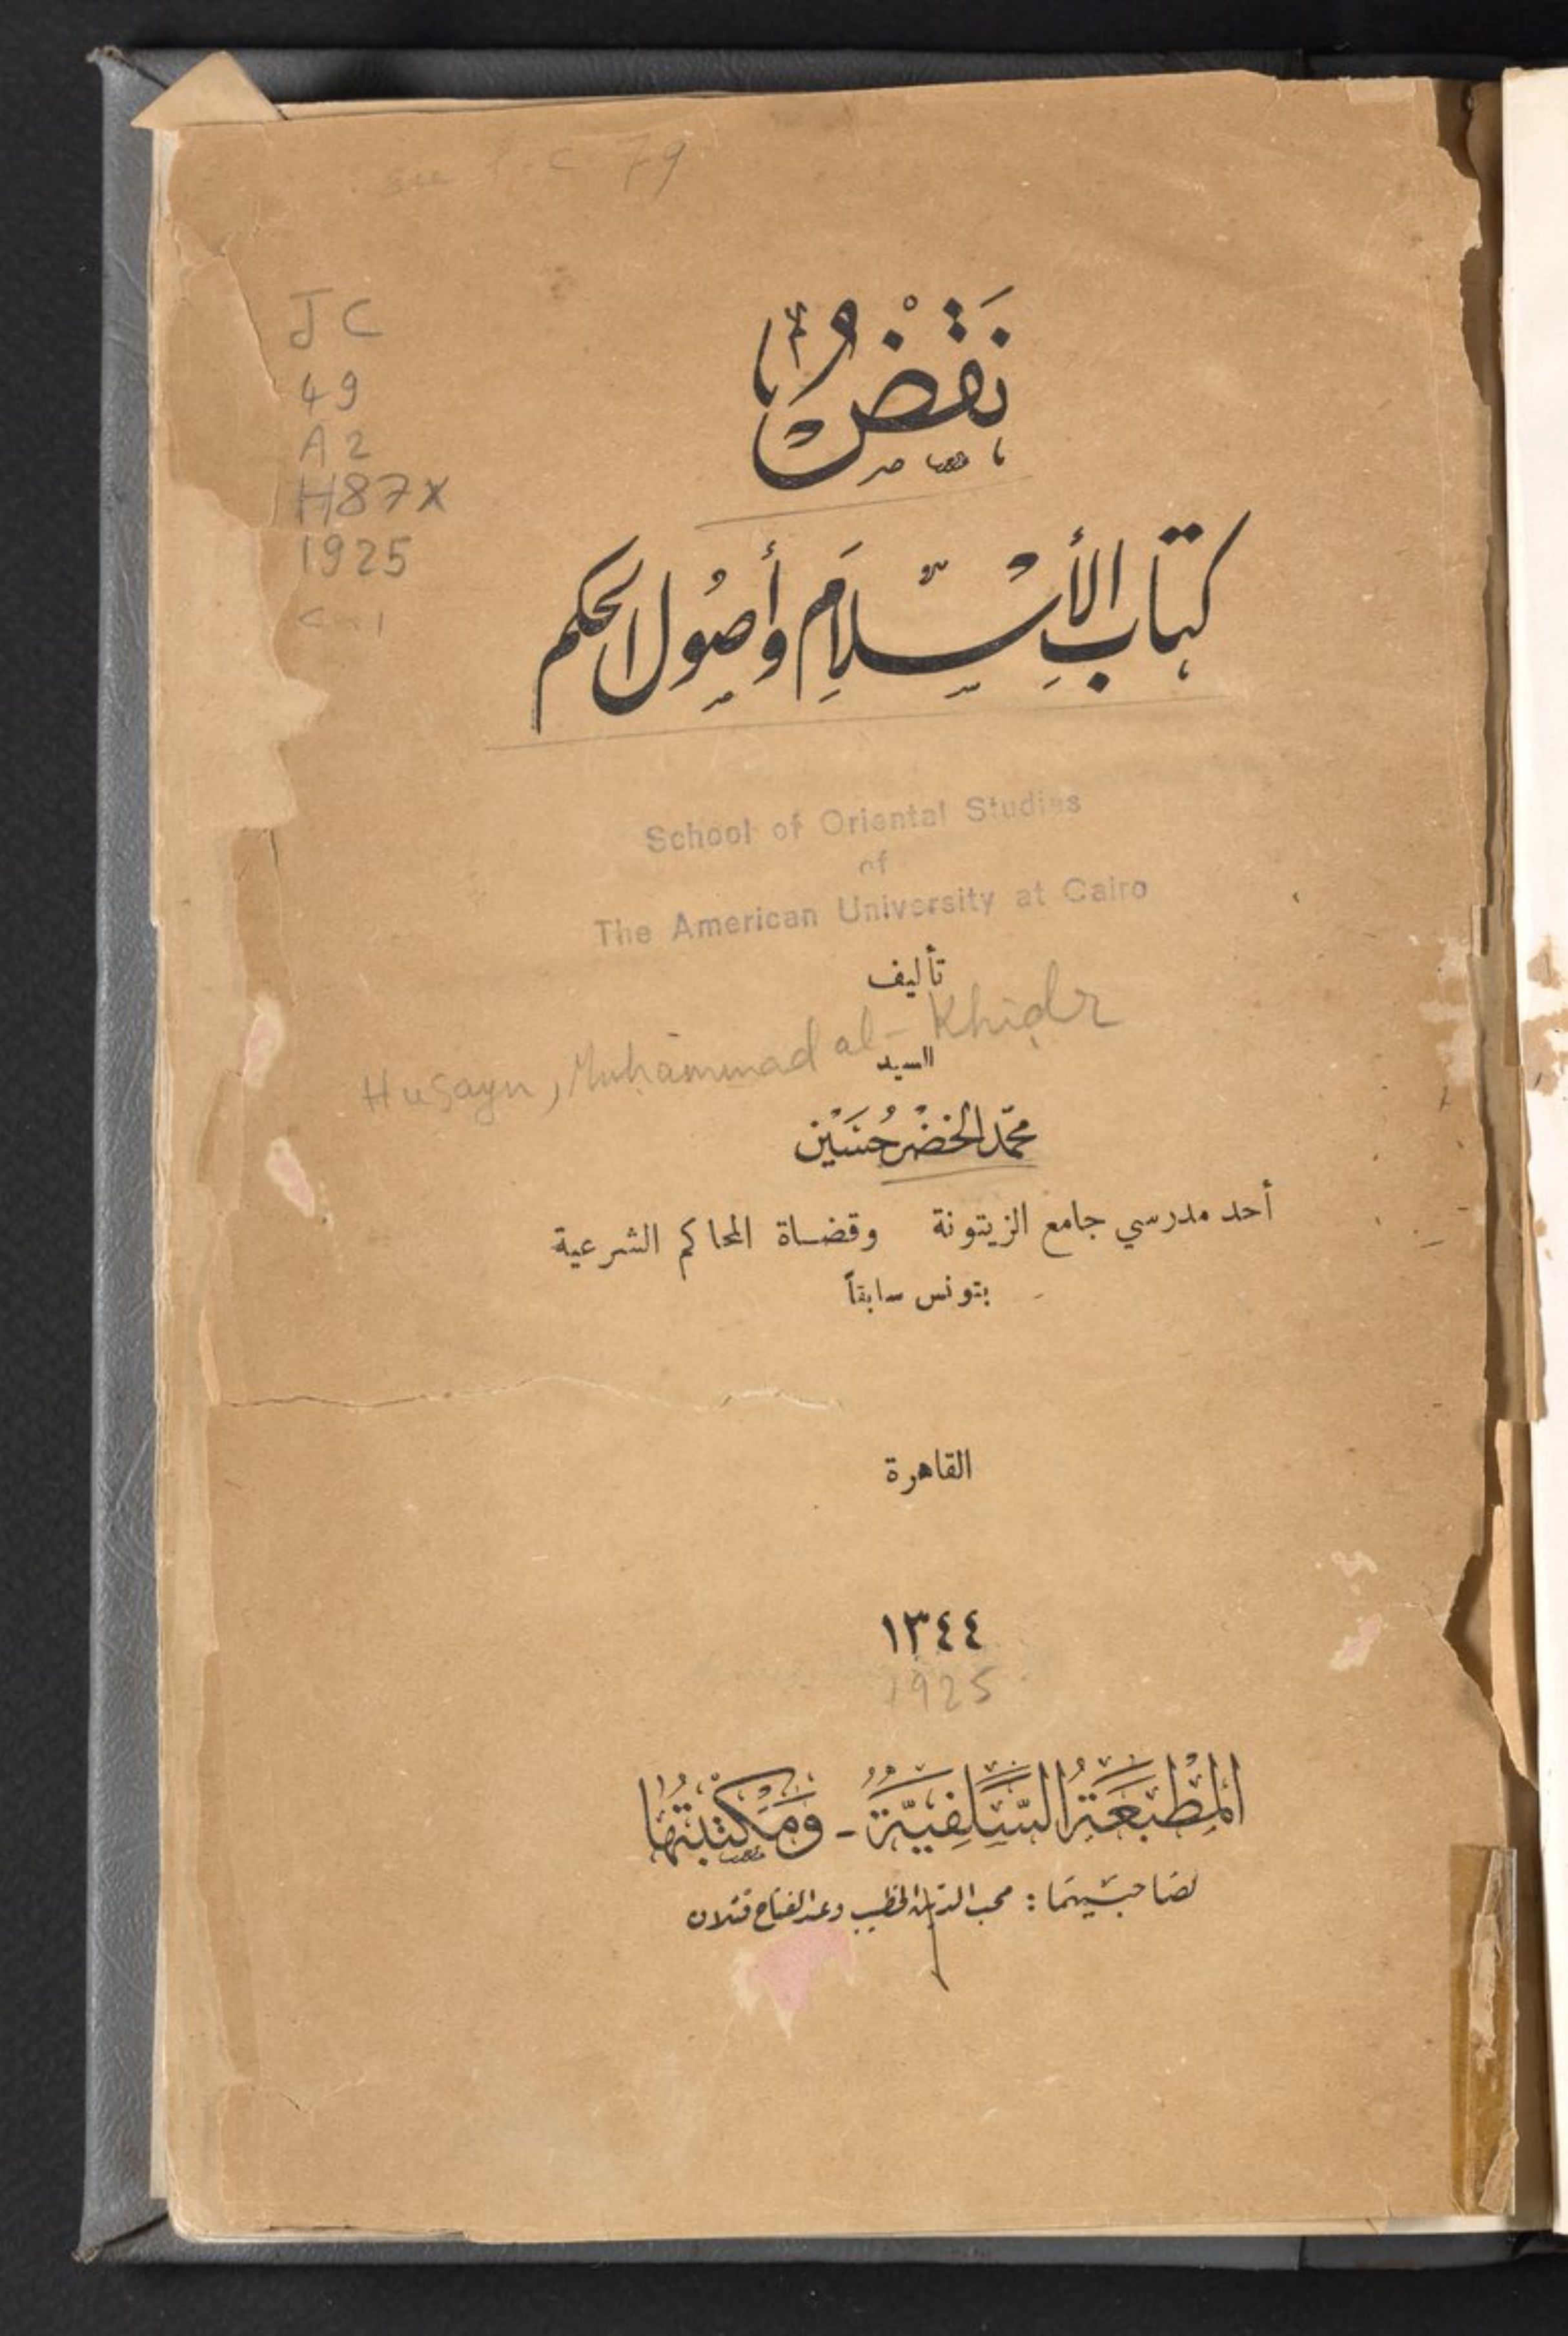 79
JC
49
A2
H87x
1925
c-1
نَقْضُ
كتاب الأسْلَام وأصُول الحكم
School of Oriental Studies
of
The American University at Cairo
تأليف
Husayn, Muhammad al-Khiḍr
السيد
محمّد الخضْر حُسَيْن
أحد مدرسي جامع الزيتونة وقضاة المحاكم الشرعية
بتونس سابقاً
القاهرة
١٣٤٤
1925
المَطْبَعَةُ السَّلَفِيَّةُ - وَمَكْتَبَتُهَا
لصَاحبَيهمَا : محب الدين الخطيب وعبد الفتاح قتلان